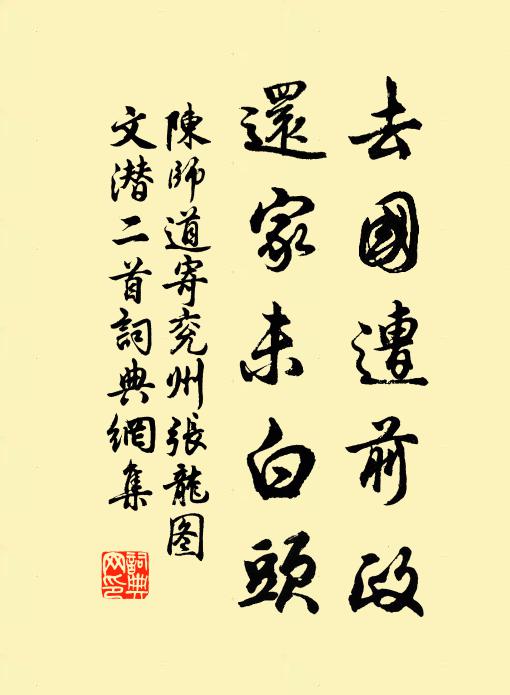 去國遭前政
還家未白頭
陳師道寄兖州張龍图
文潜二首詞典網集
詞典网印